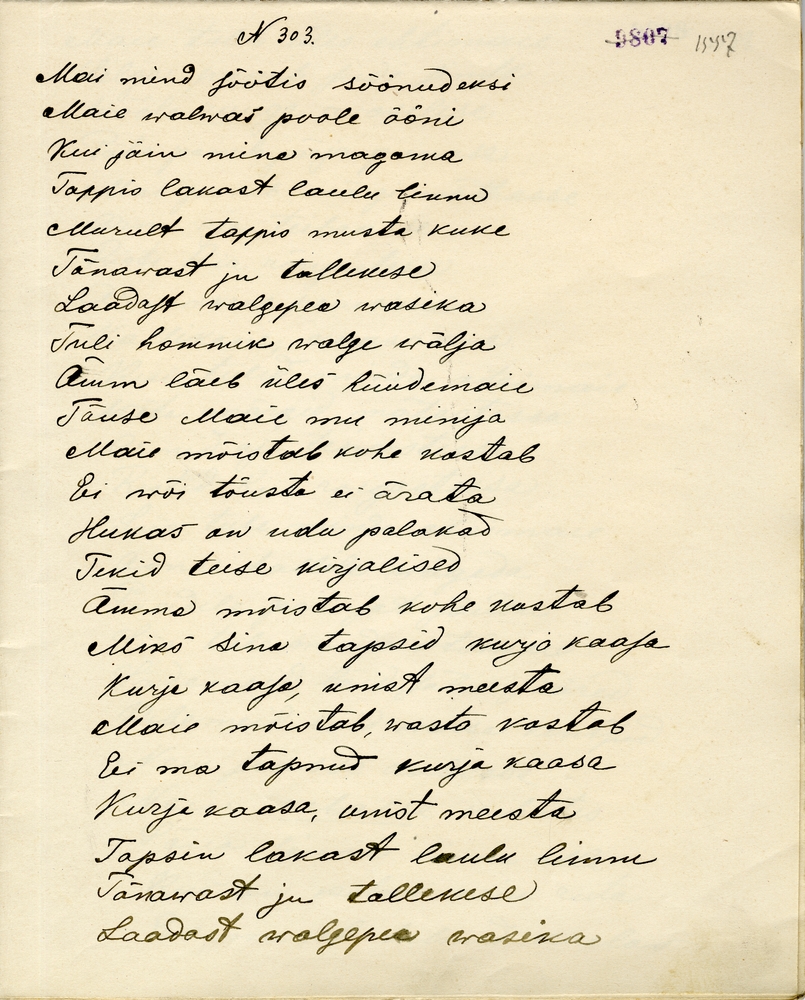 N 303.
9807 1557
Mai mind söötis söönudeksi
Maie walwas poole ööni
Kui jäin mina magama
Tappis lakast laulu linnu
Murult tappis musta kuke
Tänawast ju tallekese
Laadast walgepea wasika
Tuli hommik walge wälja
Ämm läeb üles hüüdemaie
Tõuse Maie mu minija
Maie mõistab kohe kostab
Ei wõi tõusta ei ärata
Hukas on udu palakad
Tekid teise kirjalised
Ämma mõistab kohe kostab
Miks sina tapsid kurja kaasa
Kurja kaasa, unist meesta
Maie mõistab, wasta kostab
Ei ma tapnud kurja kaasa
Kurja kaasa, unist meesta
Tapsin lakast laulu linnu
Tänawast ju tallekese
Laadast walgepea wasika